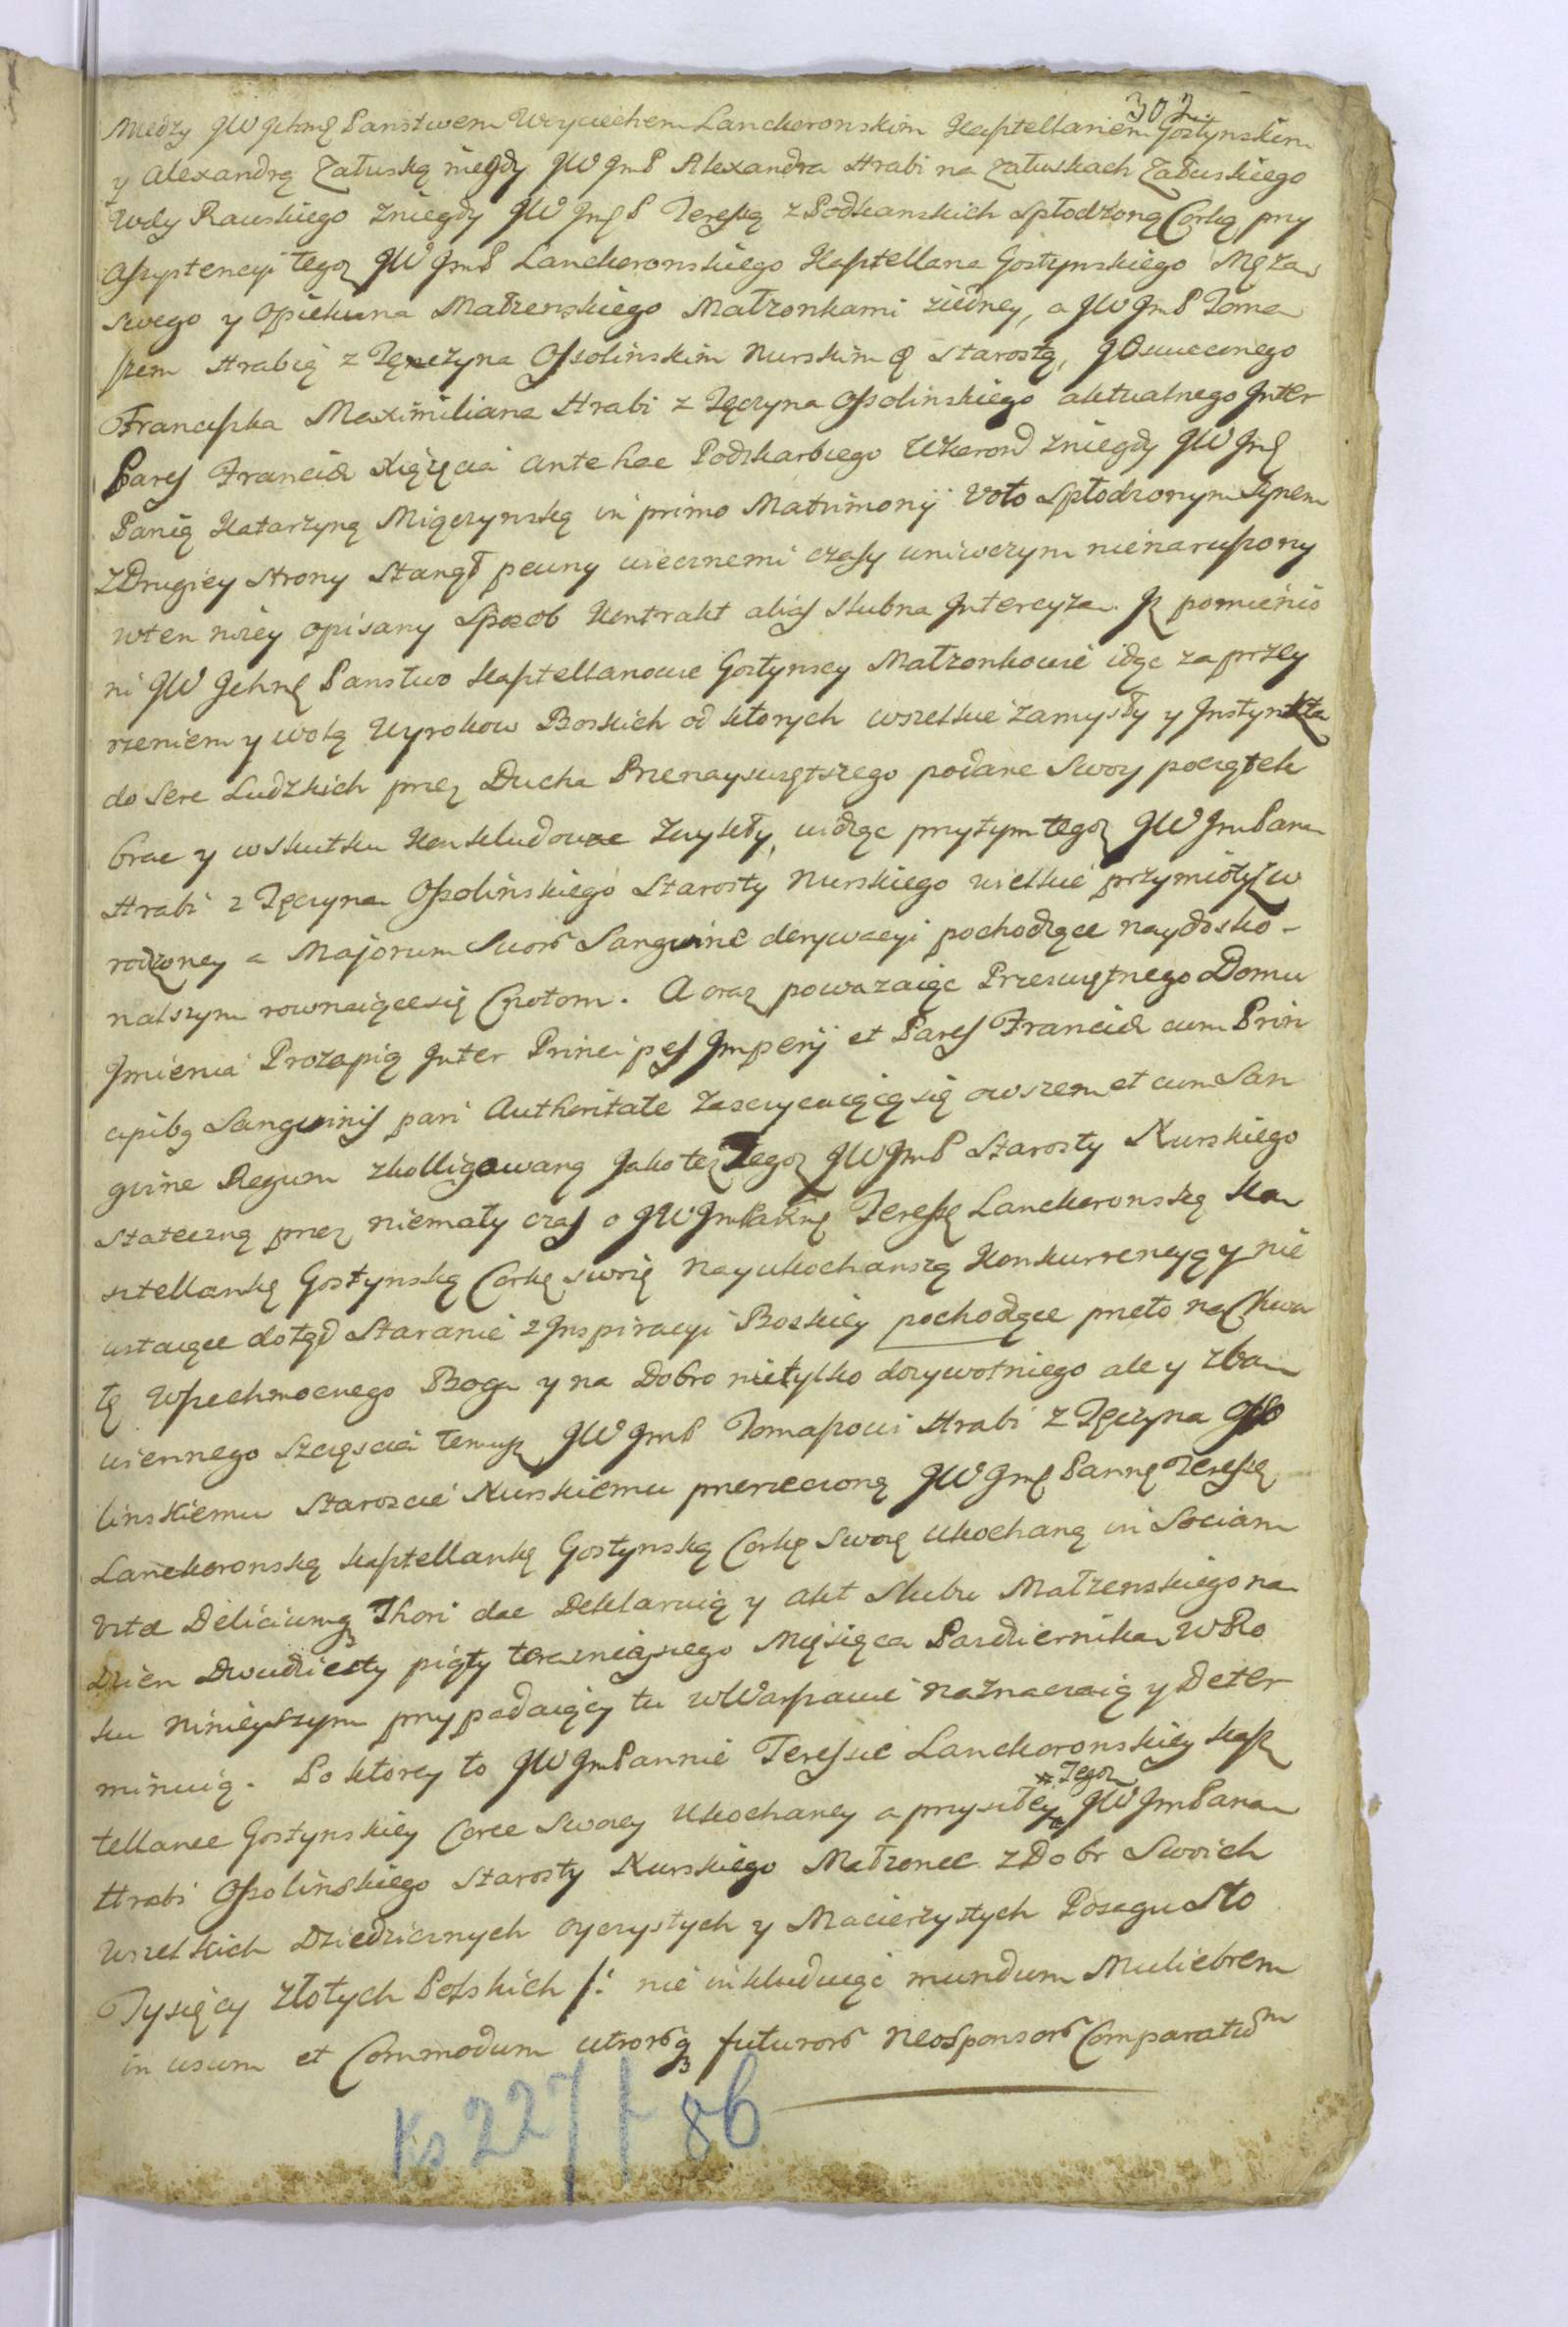 302
Między JW Jchmę Panstwem Woyciechem Lanckoronskim Kasztellanem Gostynskim
y Alexandrą Załuską niegdy JW JmP Alexandra Hrabi na Załuskach Załuskiego
Wdy Rawskiego zniegdy JW JmęP Tereszą z Podkanskich spłodzoną Corką przy
assystencyi tegoz JW JmP Lanckoronskiego Kasztellana Gostynskiego Męza
swego y Opiekuna Małzenskiego Małzonkami ziedney, a JW JmP Toma
szem Hrabią z Tęnczyna Ossolinskim Nurskim Starostą, JOswieconego
Franciszka Maximiliana Hrabi z Tęczyna Ossolinskiego aktualnego Inter
Pares Franciæ Xiążęcia antehac Podskarbiego WKorono zniegdy JW Jmę
Panią Katarzyną Miączynską in primo Matrimonÿ Voto Spłodzonym Synem
z Drugiey strony Stanął pewny wiecznemi czasy uniwczym nienaruszony
wten nizey opisany Sposob Kontrakt alias slubna Intercyza. Jz pomienio
ni JW Jchmę Panstwo Kasztellanowie Gostynscy Małzonkowie idąc za przey
rzeniem y wolą Wyrokow Boskich od ktorych wszelkie zamysły y Instynkta
do serc Ludzkich przez Ducha Przenayswiętszego podane Swoy początek
brac y wskutku Konkludowac zwykły, widząc przytym tegoz JW JmPana
Hrabi z Tęczyna Ossolinskiego Starosty Nurskiego wielkie przymioty w
rodzoney a Majorum Suor Sanguine derywacyi pochodzące naydosko-
nalszym rownaiącesię Cnotom. A oraz powazaiąc Przeswiętnego Domu
Jmienia Prozapią Inter Principes Imperÿ et Pares Franciæ cum Prin
cipibq Sanguinis pari Authoritate zaszczycaiącąsię owszem et cum San
guine Regum zkolligowaną Jakotez Tegoz JW JmP Starosty Nurskiego
stateczną przez niemały czas o JW JmPannę Tereszę Lanckoronską Ka
sztellankę Gostynską Corkę swoię Nayukochanszą Konkurrencyą y nie
ustaiące dotąd Staranie z Inspiracyi Boskiey pochodzące przeto na Chwa
łę Wszechmocnego Boga y na Dobro nietylko dozywotniego ale y zba
wiennego szczęscia temusz JW JmP Tomaszowi Hrabi z Tęczyna Osso
linskiemu Staroscie Nurskiemu przerzeczoną JW Jmę Pannę Tereszę
Lanckoronską Kasztellankę Gostynską Corkę Swoię Ukochaną in Sociam
Vitæ Deliciumq3 Thori dac Deklaruią y akt slubu Małzenskiego na
dzien Dwudziesty piąty teraznieyszego Miesiąca Pazdziernika w Ro
ku ninieyszym przypadaiący tu w Warszawie naznaczaią y Deter
minuią. Po ktorey to JW JmPannie Teresie Lanckoronskiey Kasz
tellance Gostynskiey Corce Swoiey Ukochaney a przyszłey # Tegoz JW JmPana
Hrabi Ossolinskiego Starosty Nurskiego Małzonce z Dobr Swoich
wszelkich Dziedzicznych oyczystych y Macierzystych Posagu Sto
Tysięcy Złotych Polskich /: nie inkluduiąc mundum Muliebrem
in usum et Commodum utrorq3 futuror Neosponsor Comparatum
Ks 227 f 86